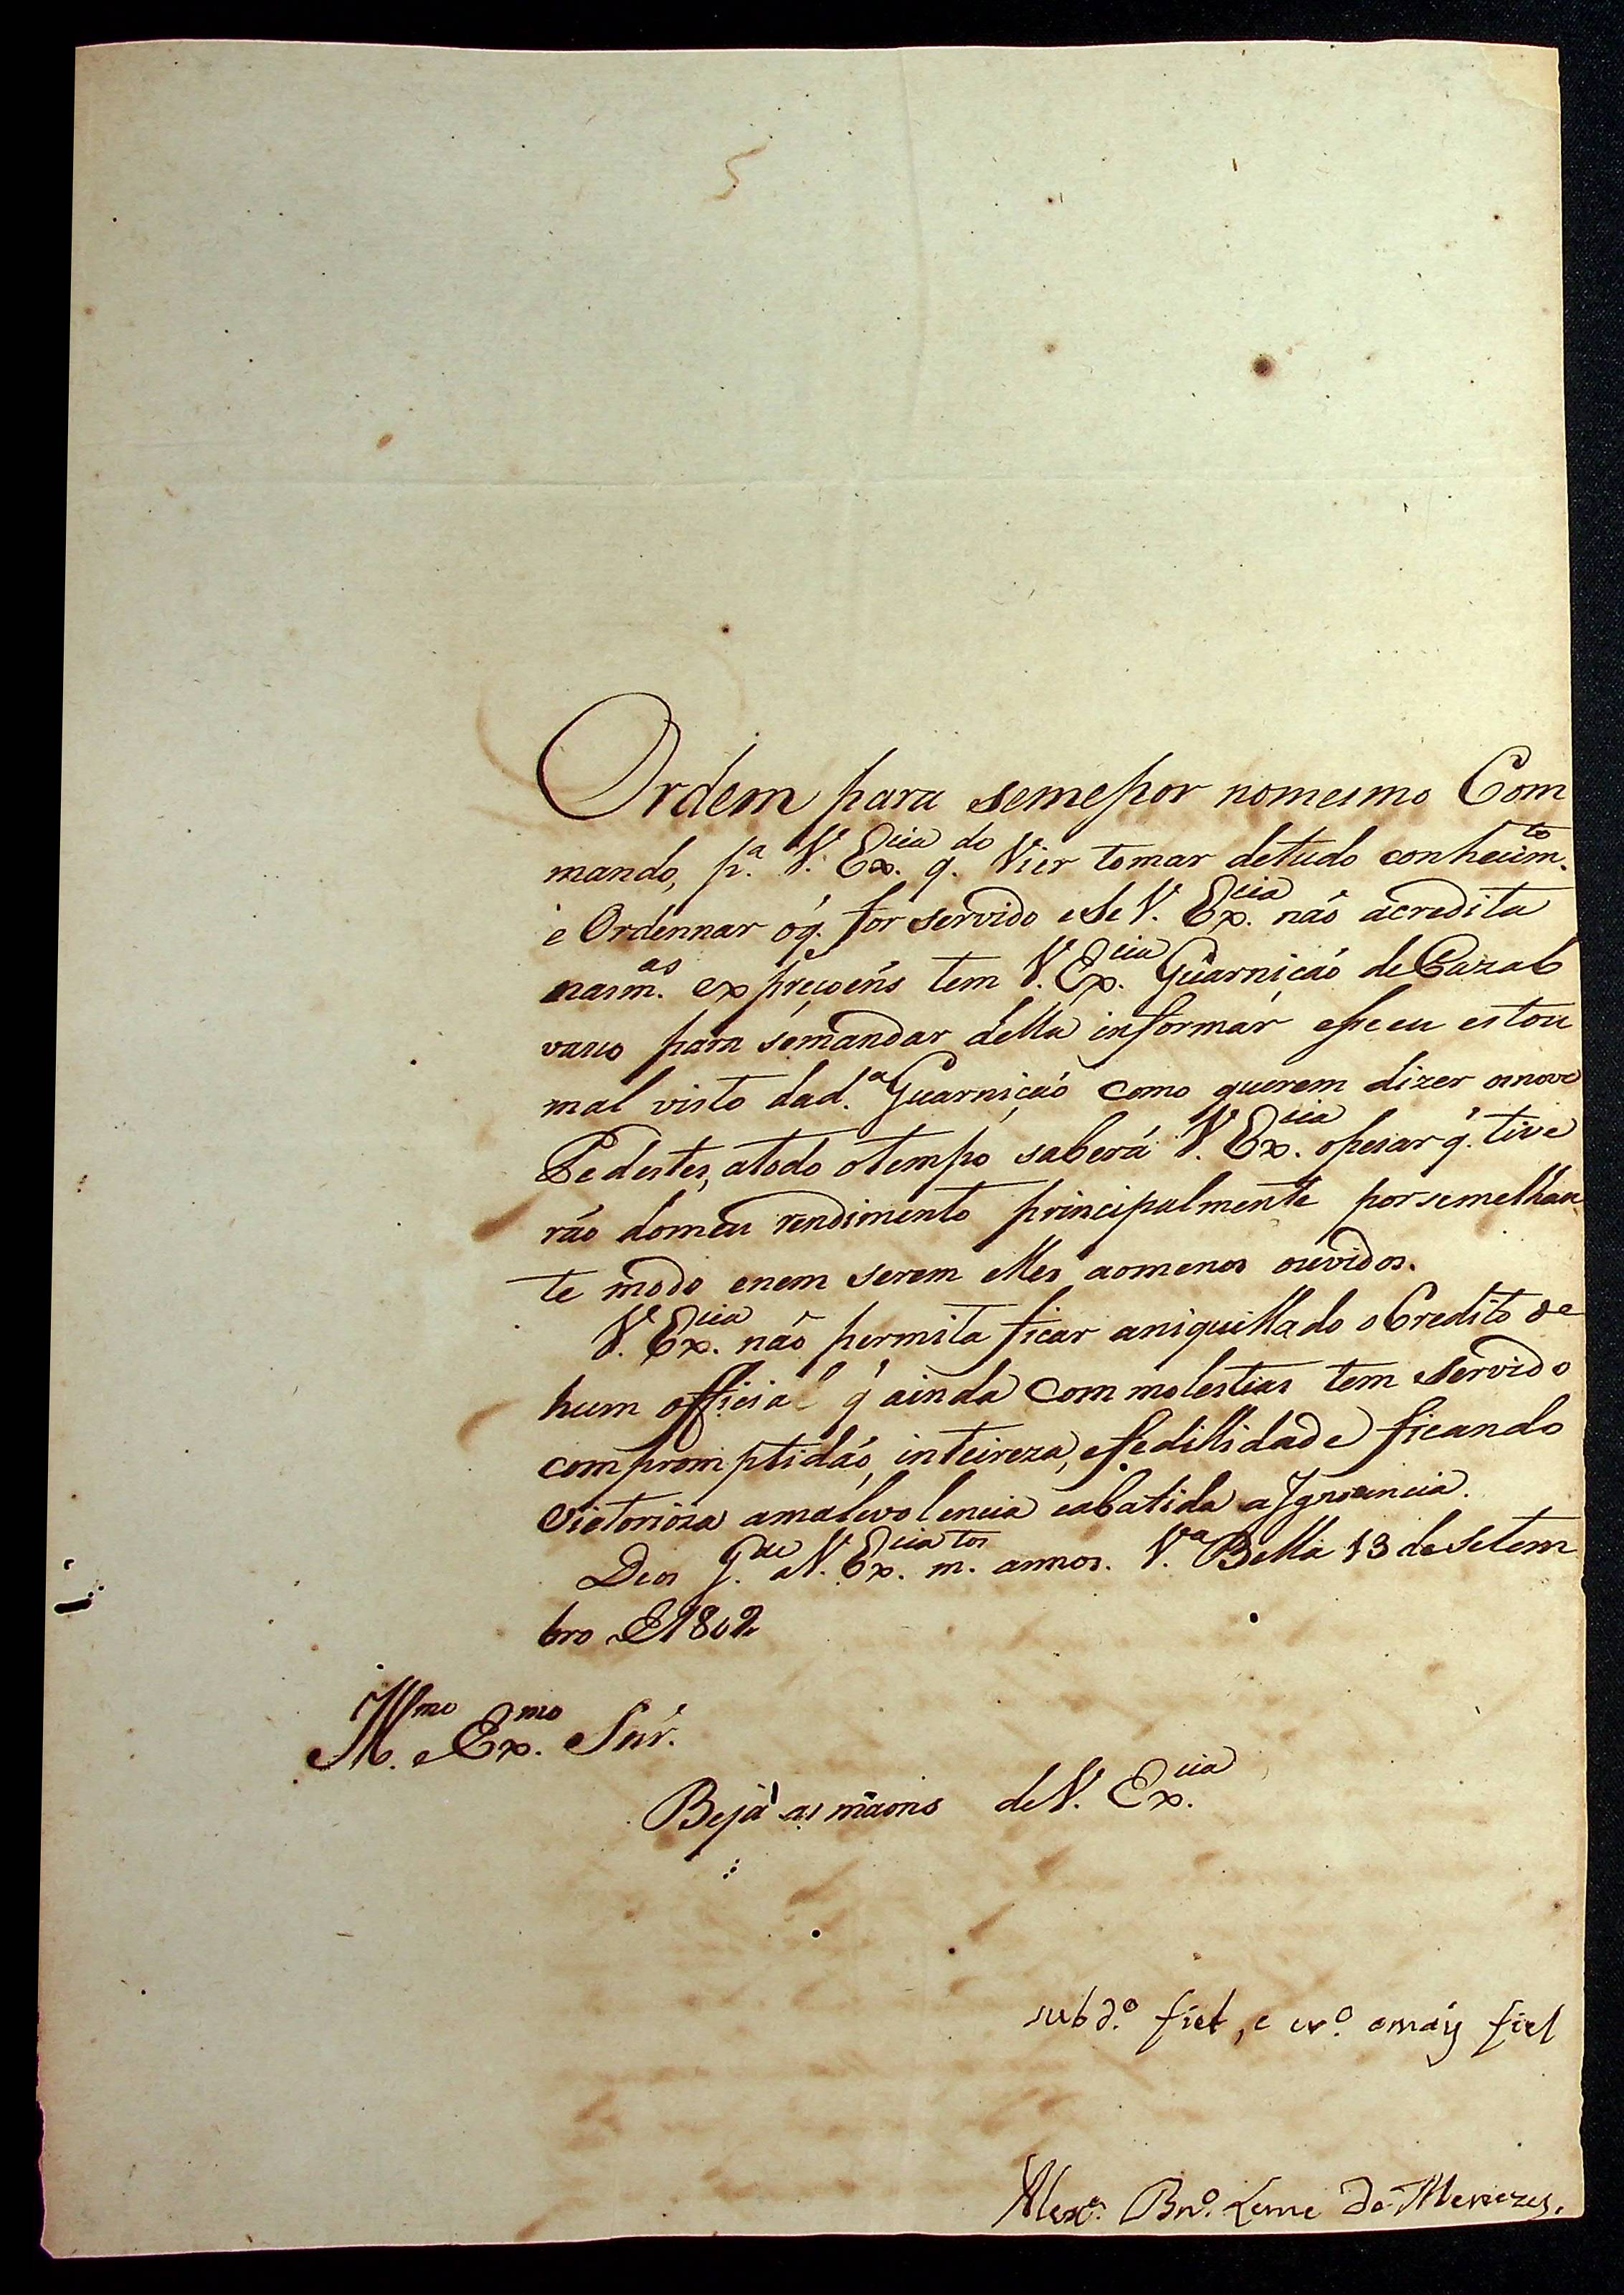 Ordem para semepor nomesmo Com
mando, p.ª V. Ex.cia q.do Vier tomar detudo conhecim.to
e Ordennar óq. for servido eSe V. Ex.cia não acredita
nasm.as expreçoens tem V. Ex.cia Guarnição deCazal
vasco para semandar della informar eseeu estou
mal visto dad.ª Guarnição como querem dizer osnove
Pedestes, atodo otempo saberá V. Ex.cia opesar q. tive
rão domeu rendimento principalmente porsemelhan
te modo enem serem elles aomenos ouvidos.
V. Ex.cia não permita ficar aniquillado oCredito de
hum official q ainda Com molestias tem Servido
compromptidão, inteireza, efedillidade ficando
Victorioza amalevolencia eabatida aIgnorancia.
Deos G.de aV. Ex.cia m.tos annos. V.ª Bella 13 de Setem
bro de 1802
Ill.mo e Ex.mo Snr.
Beja as maons deV. Ex.cia
subd.º fiel, e cr.º omáy fiel
Alex.e Bn.º Leme de Menezes.